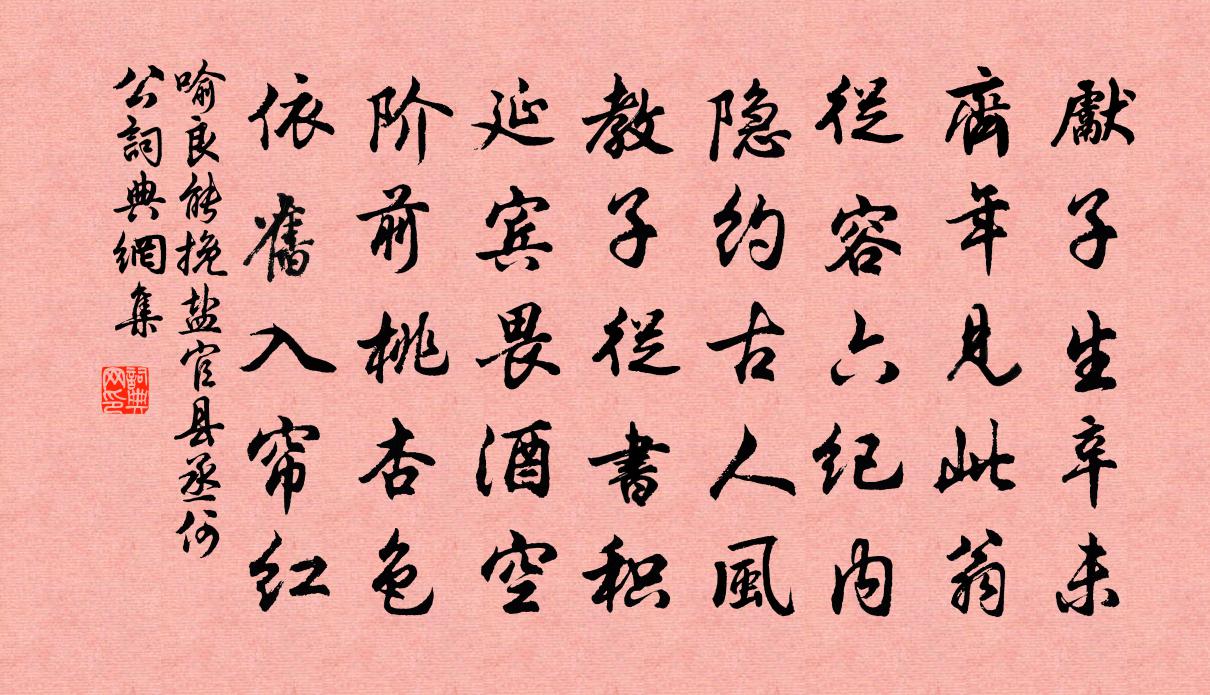 獻子生辛未
齊年見此翁
從容六纪内
隐约古人風
教子從書积
延宾畏酒空
阶前桃杏色
依舊入帘红
喻良能挽盐官县丞何
公詞典網集
詞典网印